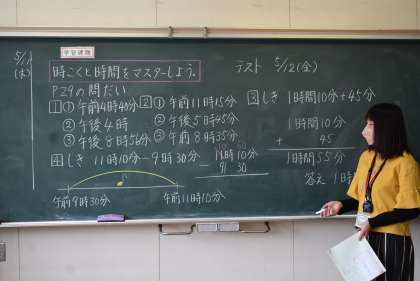 学習課題
5/11
(木)
時こくと時間をマスターしよう。
テスト 5/12(金)
P29の問だい
1 ①午前4時40分
②午後4時
③午後8時56分
2 ①午前11時15分
②午後5時45分
③午前8時35分
3 しき 1時間10分+45分
1時間10分
+ 45
1時間55分
答え 1時
4 しき 11時10分-9時30分
11時10分
- 9 30
午前9時30分
午前11時10分